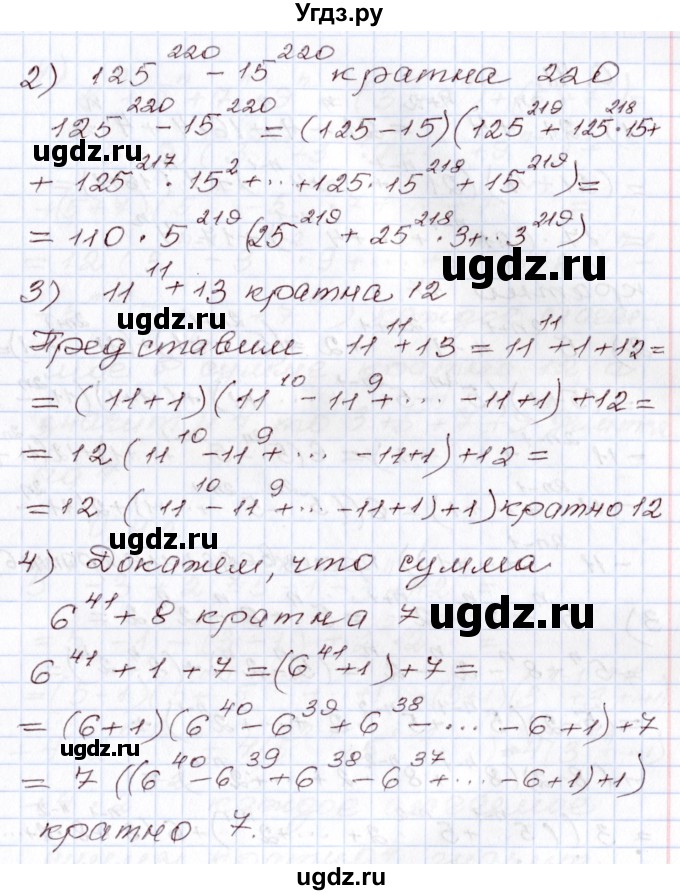 Угдз.ру
2) 125^220 - 15^220 кратна 220
125^220 - 15^220 = (125-15)(125^219 + 125^218·15+
ugdz.ru
+ 125^217·15^2+...+125·15^218+15^219)=
ugdz.ru
= 110·5^219(25^219 + 25^218·3+...3^219)
ugdz.ru
3) 11^11+13 кратна 12
ugdz.ru
Представим 11^11+13 = 11^11+1+12=
= (11+1)(11^10-11^9+...-11+1)+12=
ugdz.ru
= 12(11^10-11^9+...-11+1)+12=
=12 (11^10-11^9+...-11+1)+1) кратно 12
ugdz.ru
4) Докажем, что сумма
6^41+8 кратна 7
ugdz.ru
6^41+1+7=(6^41+1)+7=
= (6+1)(6^40-6^39+6^38-...-6+1)+7
ugdz.ru
= 7((6^40-6^39+6^38-6^37+...-6+1)+1)
кратно 7.
ugdz.ru
ugdz.ru